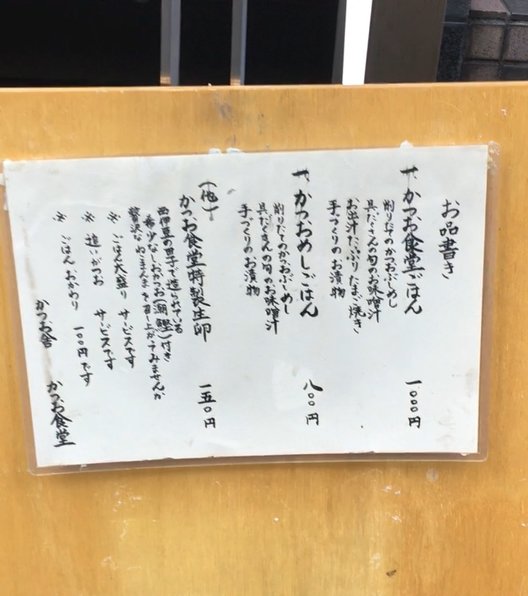 お品書き
一、かつお食堂ごはん 一000円
削りたてのかつおぶしめし
具だくさんの旬のお味噌汁
お出汁たっぷりたまご焼き
手づくりのお漬物
一、かつおめしごはん 八00円
削りたてのかつおぶしめし
具だくさんの旬のお味噌汁
手づくりのお漬物
(他)
かつお食堂特製生卵 一五0円
西伊豆の田子で造られている
希少なしおかつお(潮鰹)付き
贅沢なめこまんまを召し上がってみませんか
※ ごはん大盛り サービスです
※ 追いがつお サービスです
※ ごはんおかわり 一00円です
かつお舎 かつお食堂